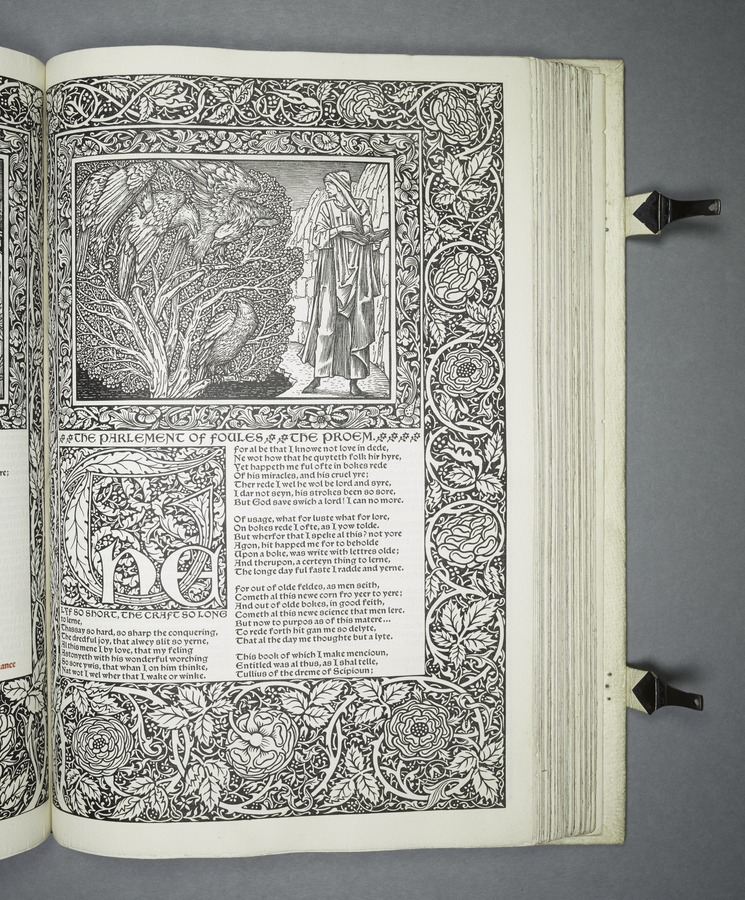 re:
ance
THE PARLEMENT OF FOULES. THE PROEM.
THE
LYF SO SHORT, THE CRAFT SO LONG
to lerne,
Thassay so hard, so sharp the conquering,
The dredful joy, that alwey slit so yerne,
Al this mene I by love, that my feling
Astonyeth with his wonderful worching
So sore ywis, that whan I on him thinke,
Nat wot I wel wher that I wake or winke.
For al be that I knowe not love in dede,
Ne wot how that he quyteth folk hir hyre,
Yet happeth me ful ofte in bokes rede
Of his miracles, and his cruel yre;
Ther rede I wel he wol be lord and syre,
I dar not seyn, his strokes been so sore,
But God save swich a lord! I can no more.
Of usage, what for luste what for lore,
On bokes rede I ofte, as I yow tolde.
But wherfor that I speke al this? not yore
Agon, hit happed me for to beholde
Upon a boke, was write with lettres olde;
And therupon, a certeyn thing to lerne,
The longe day ful faste I radde and yerne.
For out of olde feldes, as men seith,
Cometh al this newe corn fro yeer to yere;
And out of olde bokes, in good feith,
Cometh al this newe science that men lere.
But now to purpos as of this matere...
To rede forth hit gan me so delyte,
That al the day me thoughte but a lyte.
This book of which I make mencioun,
Entitled was al thus, as I shal telle,
Tullius of the dreme of Scipioun;